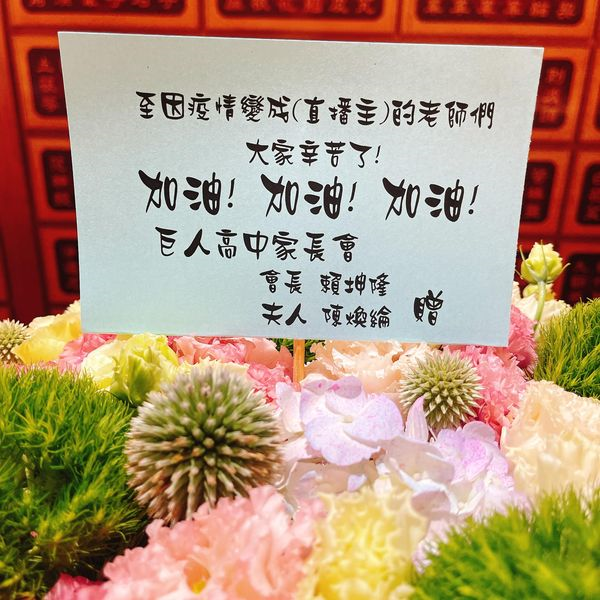 至因疫情變成(直播主)的老師們
大家辛苦了!
加油! 加油! 加油!
巨人高中家長會
會長 賴坤隆
夫人 陳煥綸 贈